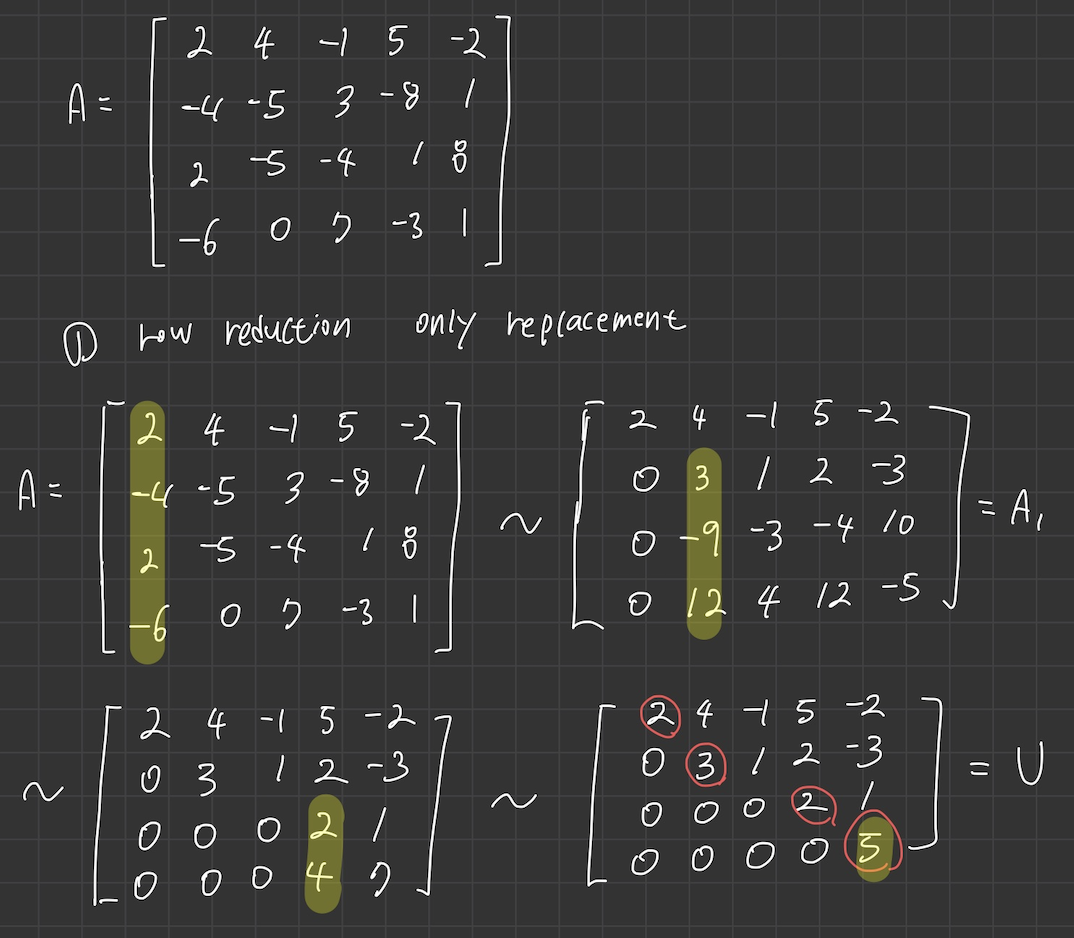 A = [ 2 4 -1 5 -2
-4 -5 3 -8 1
2 -5 -4 1 8
-6 0 7 -3 1 ]
① row reduction only replacement
A = [ 2 4 -1 5 -2
-4 -5 3 -8 1
2 -5 -4 1 8
-6 0 7 -3 1 ]
~ [ 2 4 -1 5 -2
0 3 1 2 -3
0 -9 -3 -4 10
0 12 4 12 -5 ] = A₁
~ [ 2 4 -1 5 -2
0 3 1 2 -3
0 0 0 2 1
0 0 0 4 7 ]
~ [ 2 4 -1 5 -2
0 3 1 2 -3
0 0 0 2 1
0 0 0 0 5 ] = U